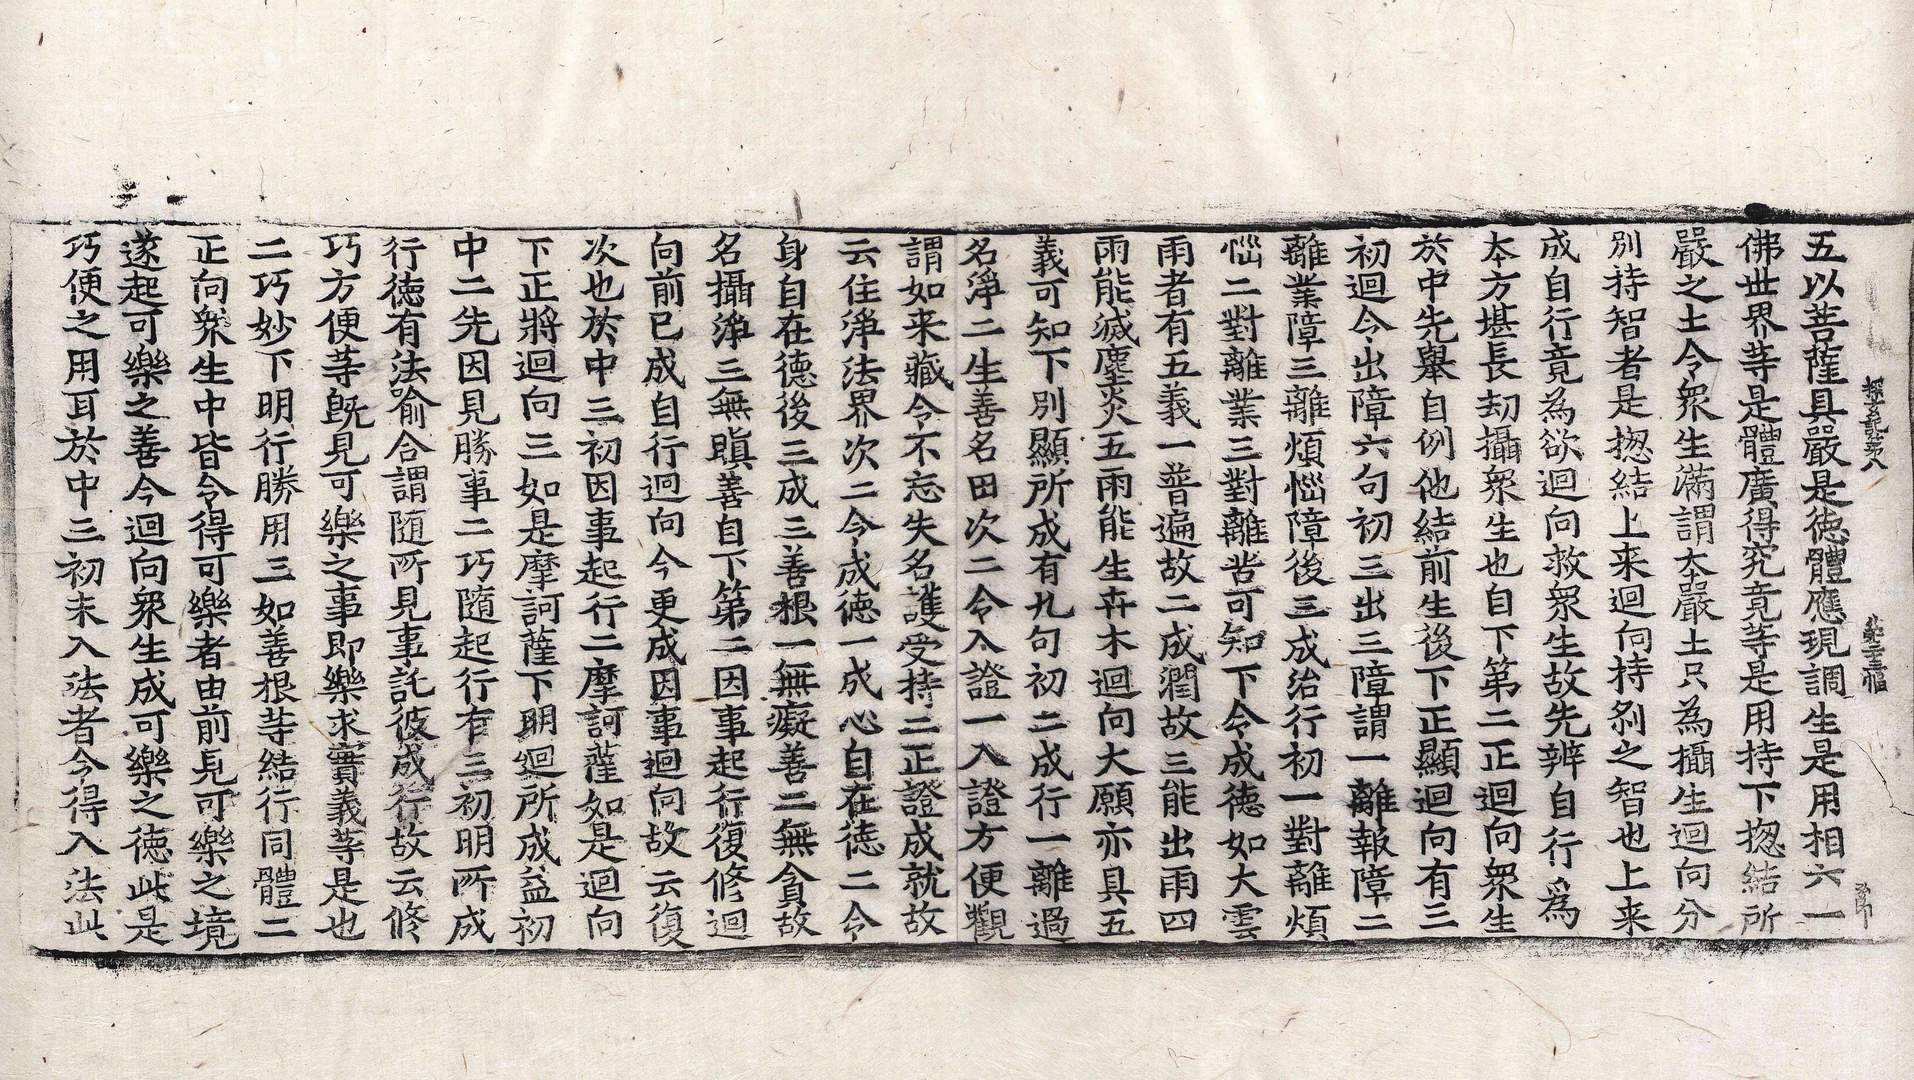 探玄記第八
五以菩薩具嚴是徳體應現調生是用相六一
佛世界等是體廣得究竟等是用持下揔結所
嚴之土令衆生滿謂大嚴土只為攝生迴向分
別持智者是揔結上来迴向持刹之智也上来
成自行竟為欲迴向救衆生故先辨自行為
本方堪長劫攝衆生也自下第二正迴向衆生
於中先舉自例他結前生後下正顯迴向有三
初迴令出障六句初三出三障謂一離報障二
離業障三離煩惱障後三成治行初一對離煩
惱二對離業三對離苦可知下令成徳如大雲
雨者有五義一普遍故二成潤故三能出雨四
雨能滅塵炎五雨能生卉木迴向大願亦具五
義可知下別顯所成有九句初二成行一離過
名淨二生善名田次二令入證一入證方便觀
謂如来藏令不忘失名護受持二正證成就故
云住淨法界次二令成徳一成心自在徳二令
身自在徳後三成三善根一無癡善二無貪故
名攝淨三無瞋善自下第二因事起行復修迴
向前已成自行迴向今更成因事迴向故云復
次也於中三初因事起行二摩訶薩如是迴向
下正將迴向三如是摩訶薩下明迴所成益初
中二先因見勝事二巧隨起行有三初明所成
行徳有法喻合謂随所見事託彼成行故云修
巧方便等既見可樂之事即樂求實義等是也
二巧妙下明行勝用三如善根等結行同體二
正向衆生中皆令得可樂者由前見可樂之境
遂起可樂之善今迴向衆生成可樂之徳此是
巧便之用耳於中三初未入法者令得入法此